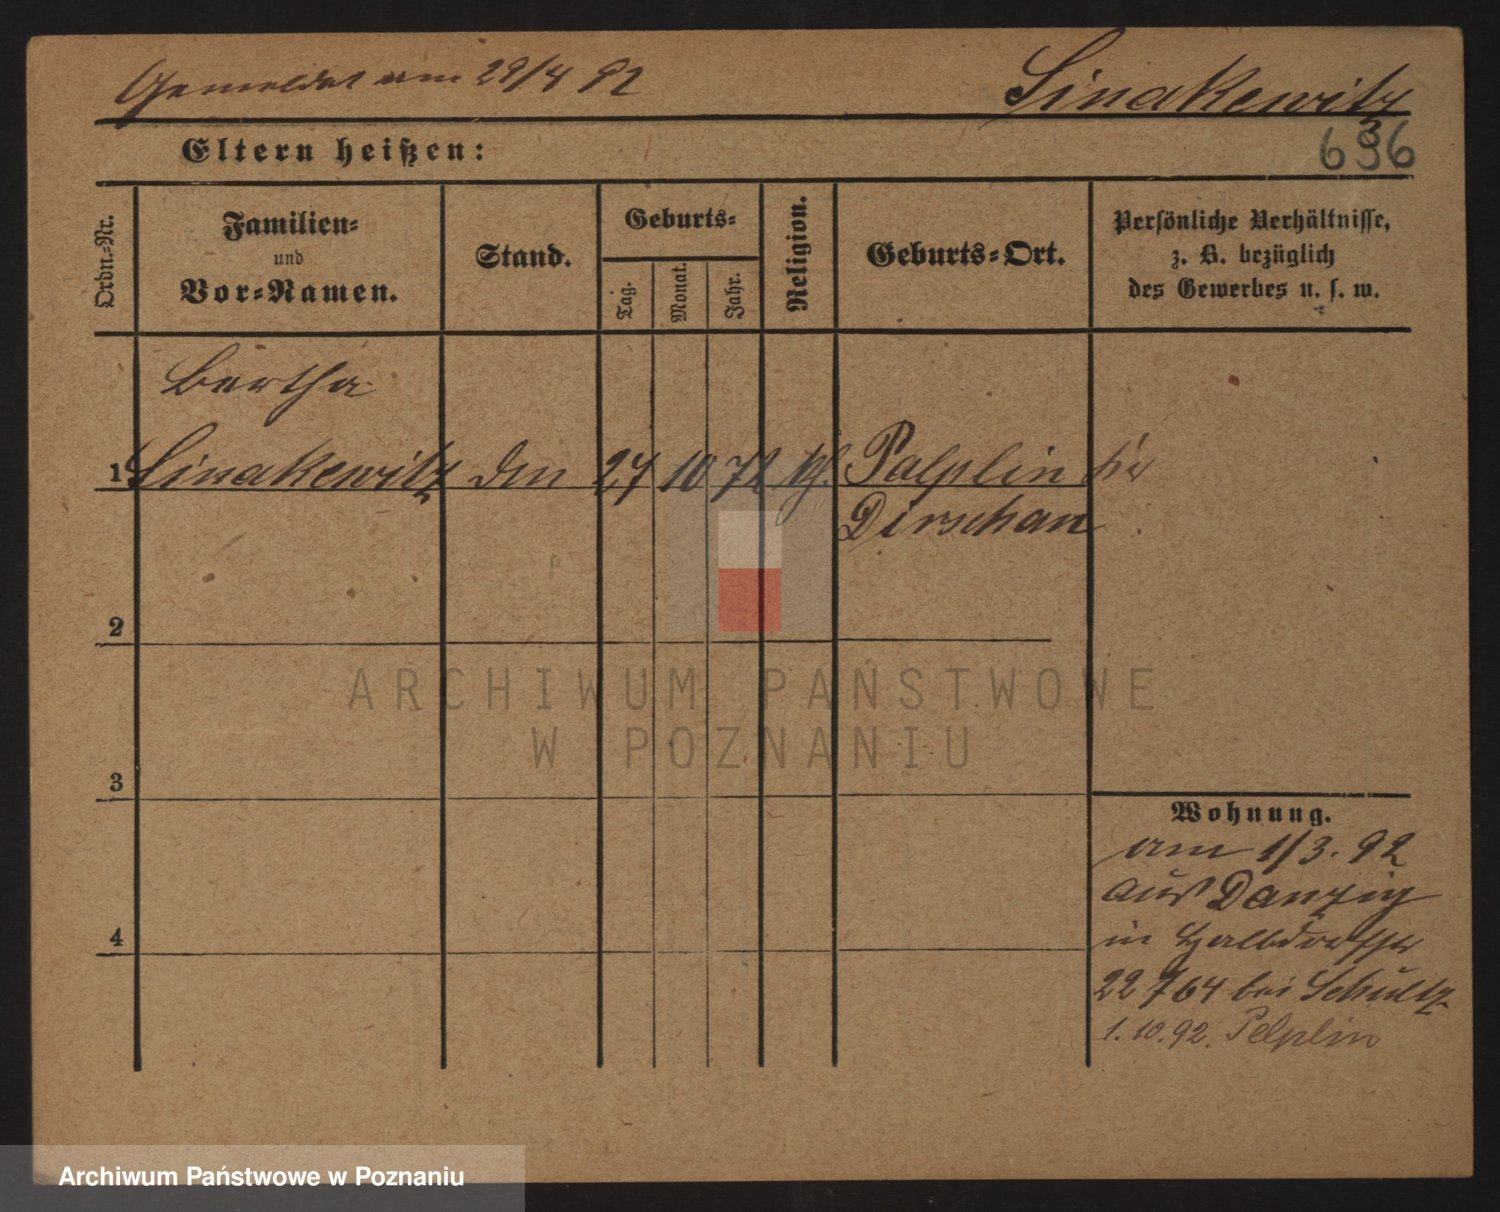 Gemeldet am 29/4 92
Sinakewitz
636
Eltern heißen:
Ordn.-Nr.
Familien-
und
Vor-Namen.
Stand.
Geburts-
Tag.
Monat.
Jahr.
Religion.
Geburts-Ort.
Persönliche Verhältnisse,
z. B. bezüglich
des Gewerbes u. s. w.
Bertha
1 Sinakewitz 27 10 72 Palplin
Dirschau
2
ARCHIWUM PAŃSTWOWE
W POZNANIU
3
Wohnung.
am 1/3. 92
aus Danzig
4
in Halbdorfstr
22 764 bei Schultz
1.10.92. Pelplin
Archiwum Państwowe w Poznaniu